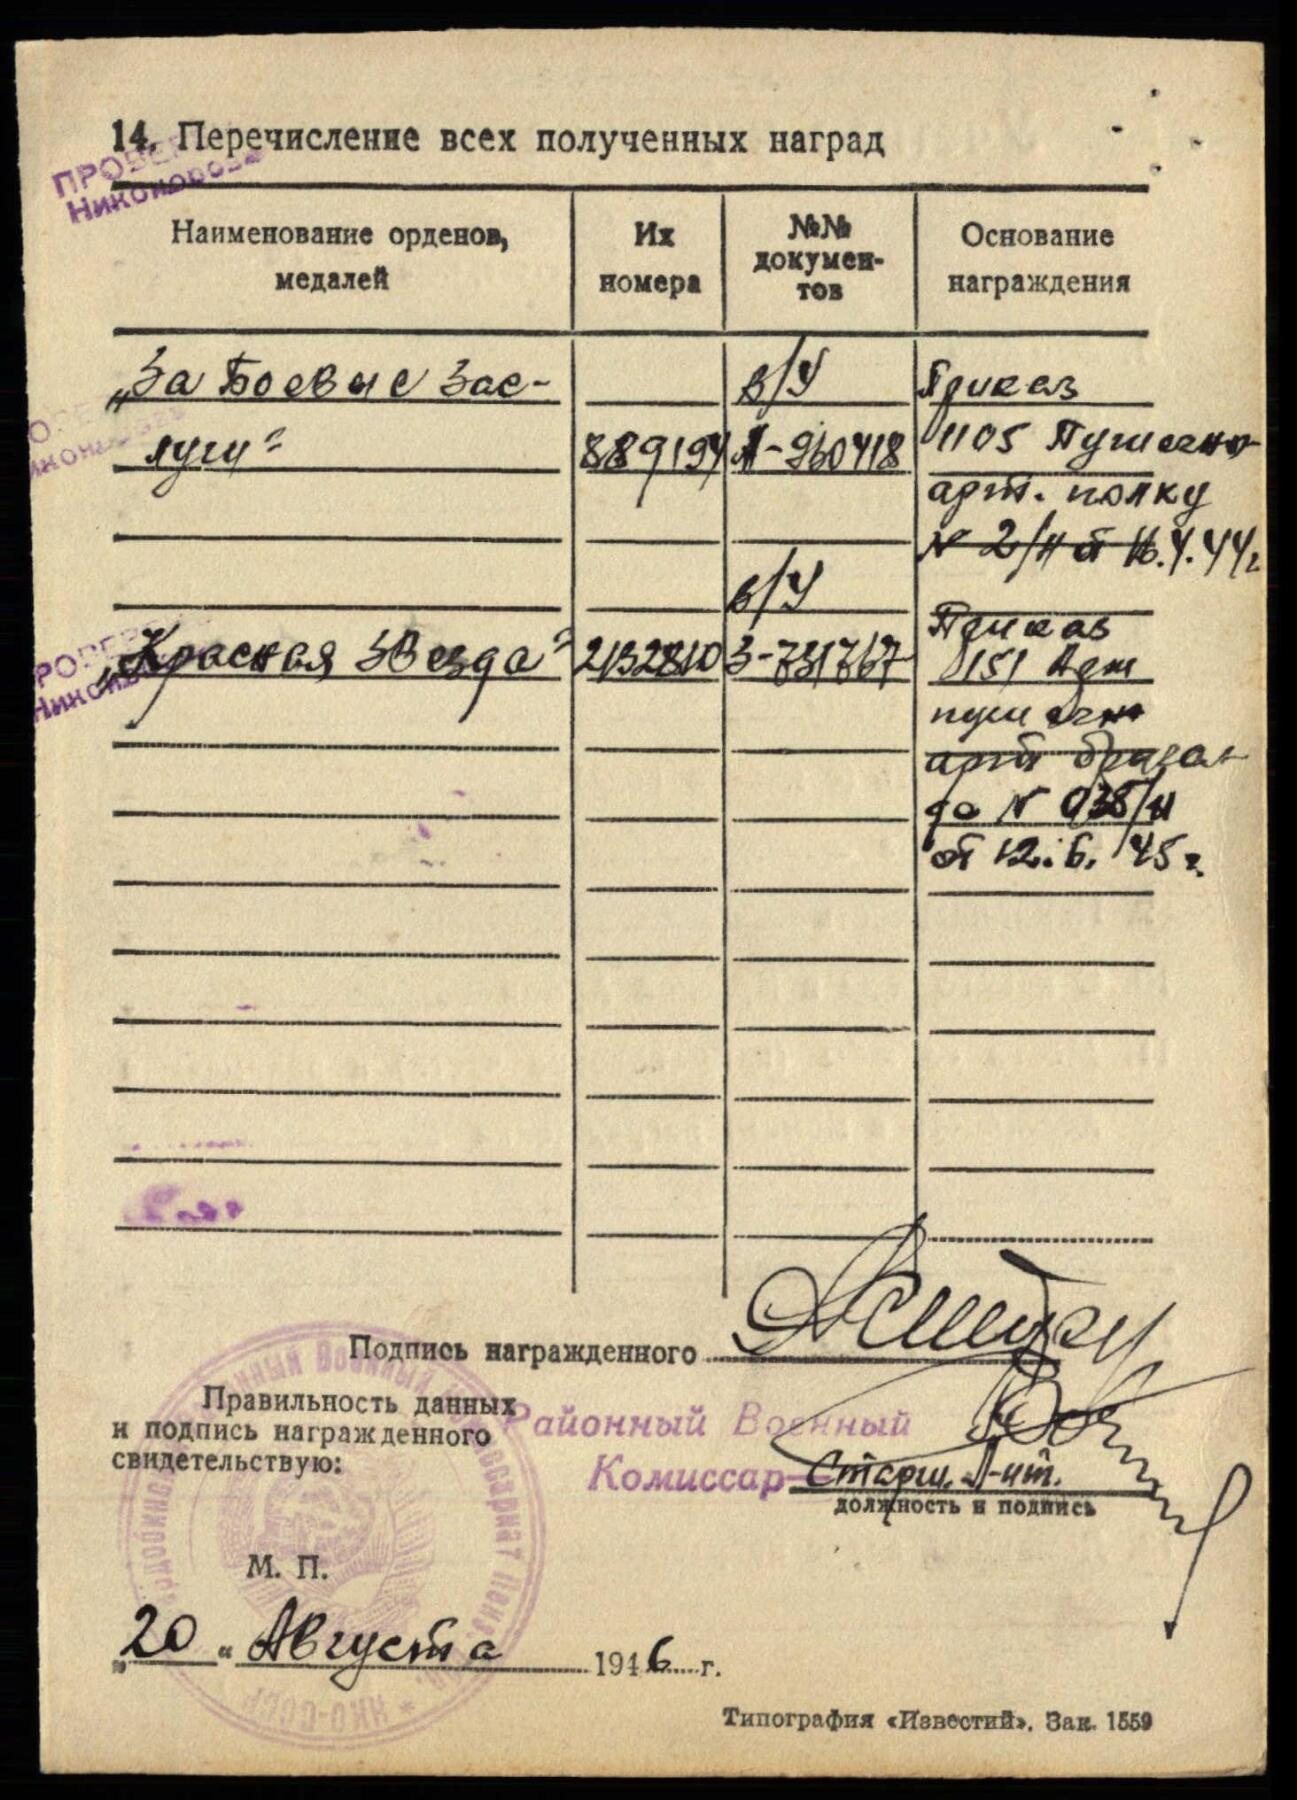 14. Перечисление всех полученных наград
ПРОВЕР
Никонорова
Наименование орденов, медалей
Их номера
№№ докумен-тов
Основание награждения
„За Боевые Зас-
луги“
889194
в/у
А-960418
Приказ
1105 Пушечно
арт. полку
N 2/н от 16.4.44г
„Красная Звезда“
2132810
в/у
З-731767
Приказ
151 Арм
пушечн
арт бригал
да N 038/н
от 12.6.45г.
Подпись награжденного
Правильность данных
и подпись награжденного
свидетельствую:
Районный Военный
Комиссар
Старш. Л-нт.
должность и подпись
М. П.
„20“ Августа 1946 г.
НКО-СССР
Типография «Известий». Зак. 1559